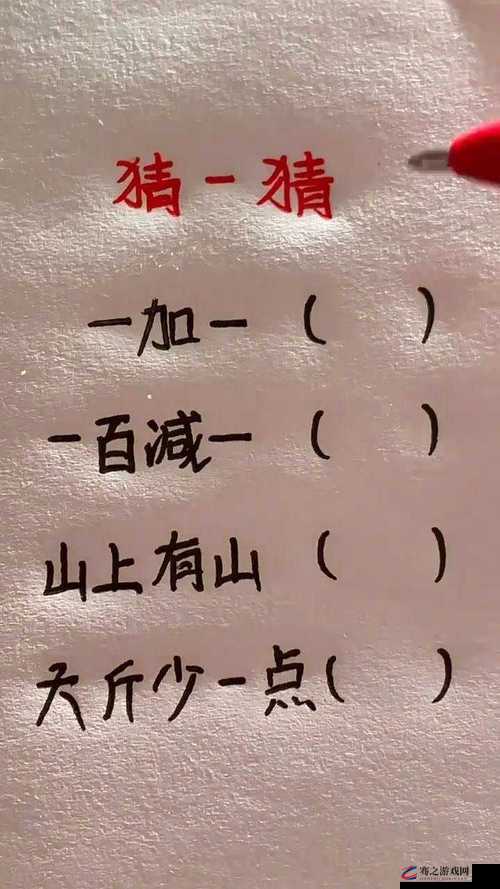 猜一猜
一加一（ ）
一百减一（ ）
山上有山（ ）
天斤少一点（ ）
骞之游戏网